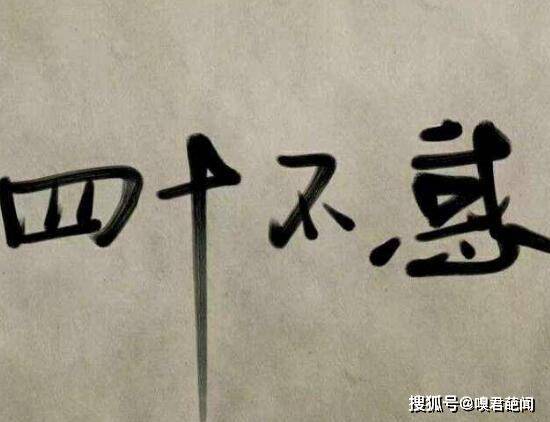 四十不惑
搜狐号@嗅君葩闻